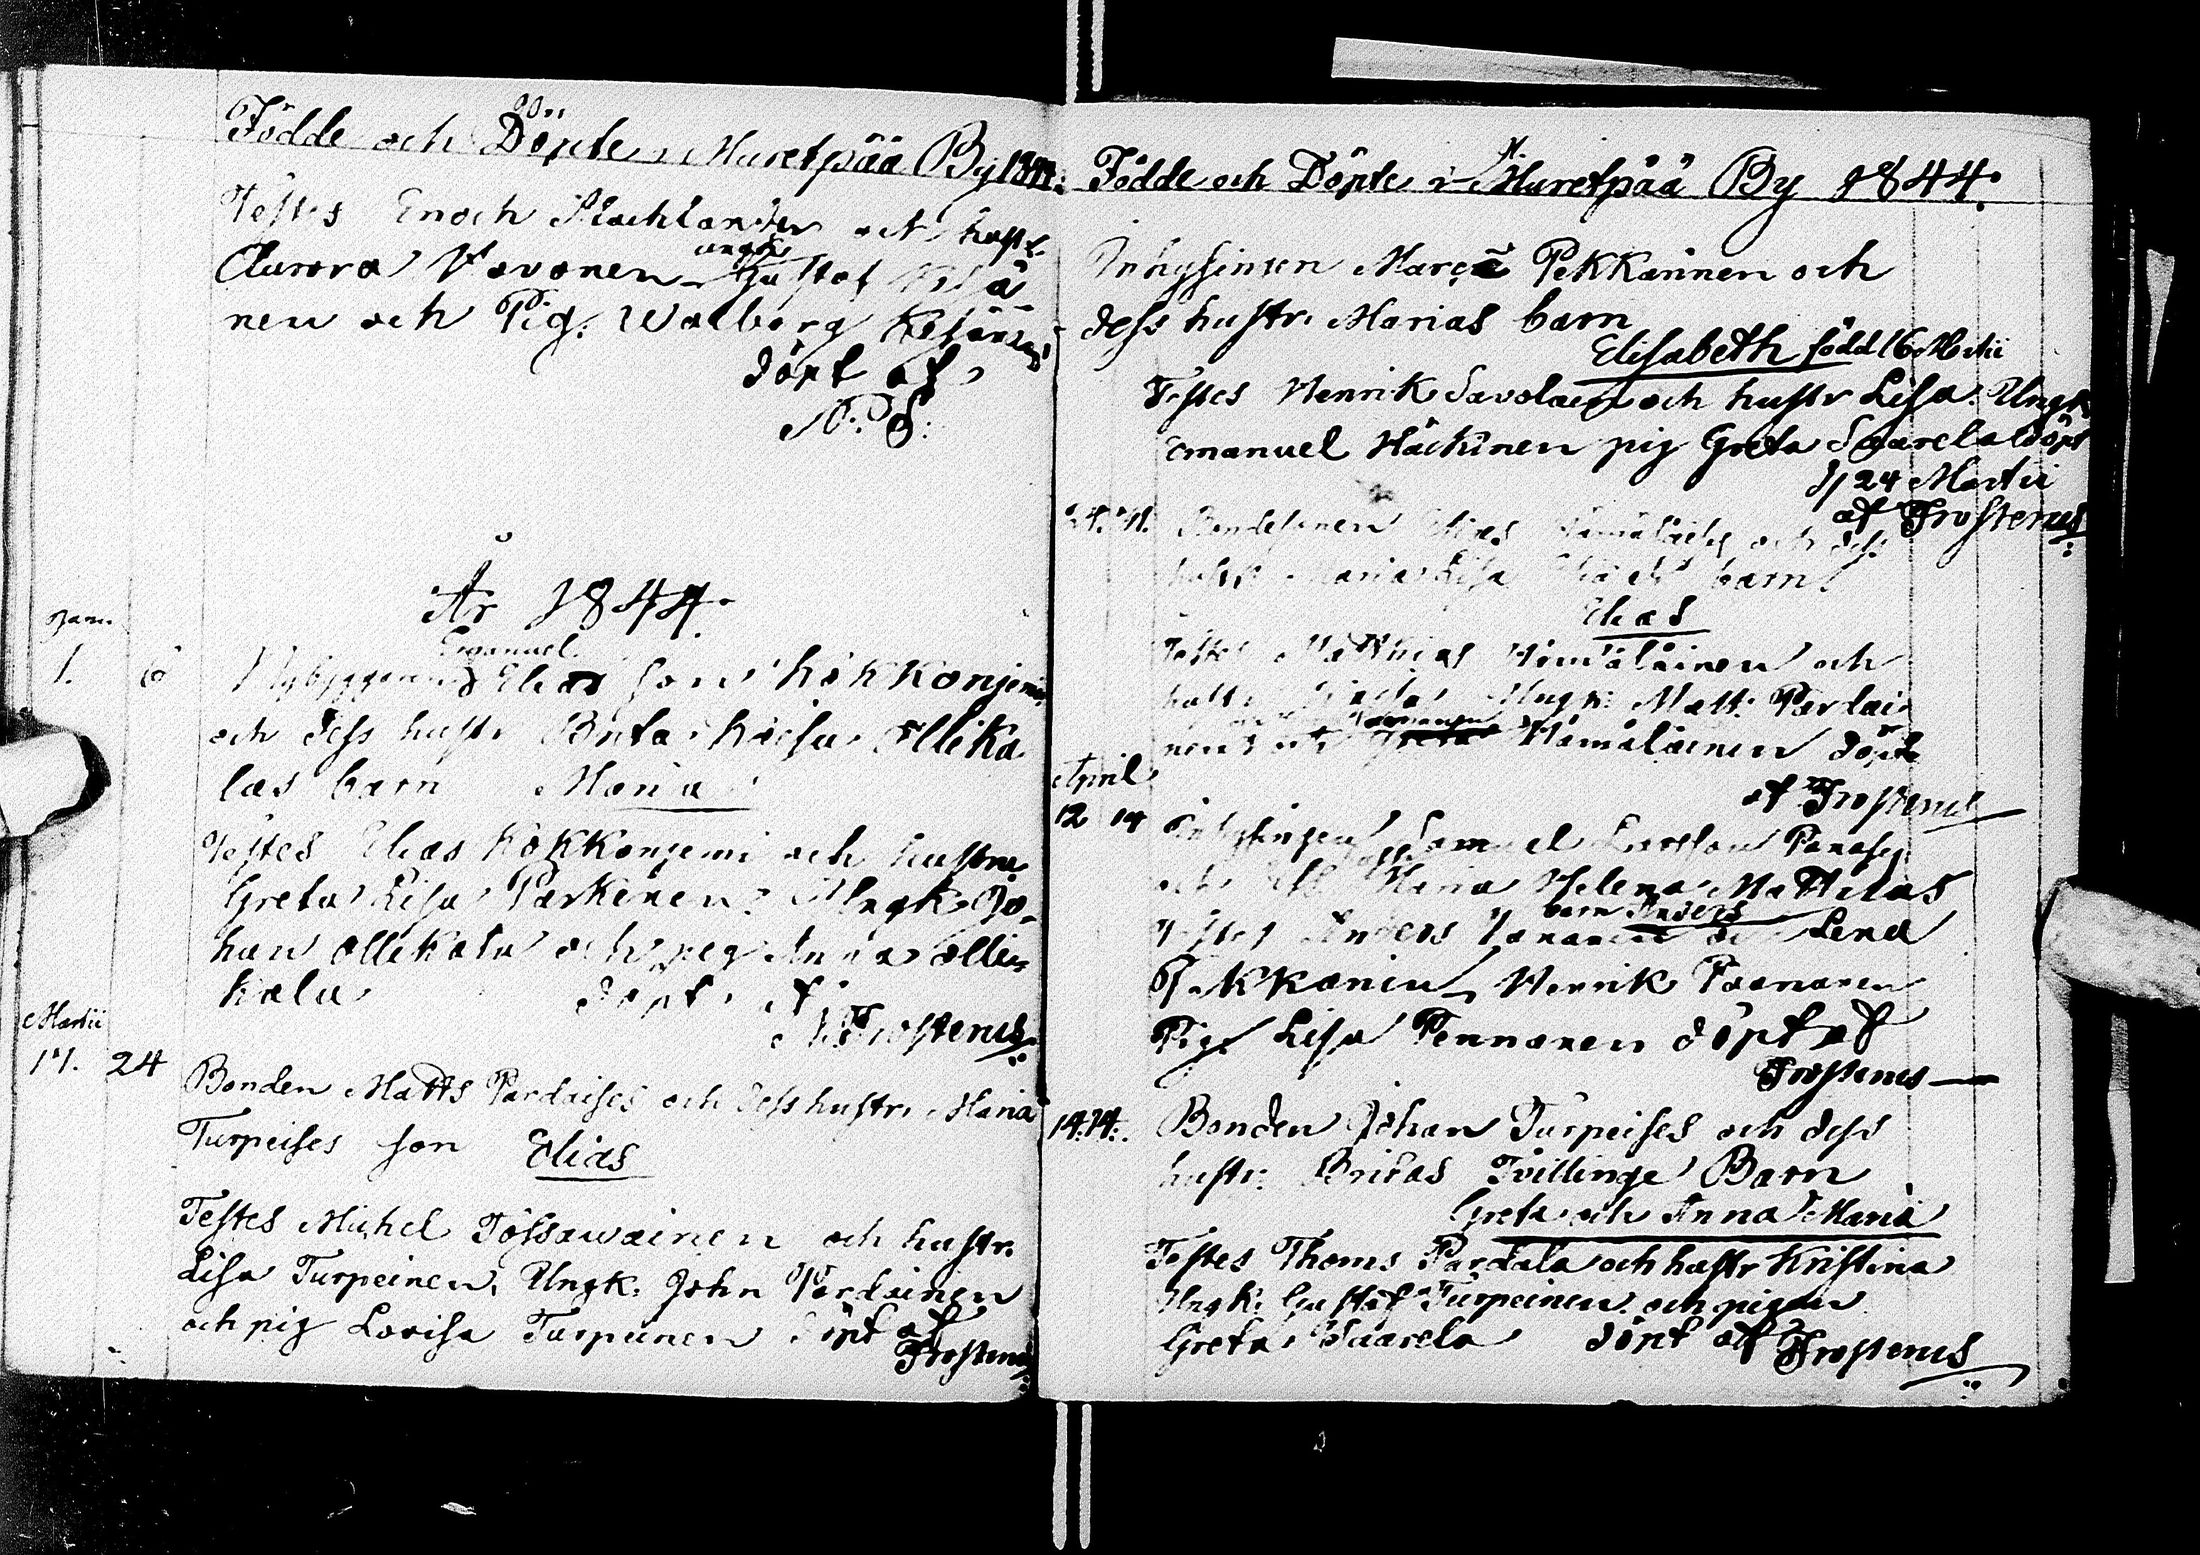 Födde och Döpte i Muretpää By
Testes Enoch och hust.
ungk
Aurora Gustaf
nen och Pig. Walborg
döpt af
N. F.
År 1844.
Janu.
Emanuel
1. 6 Nybyggaren Elias son Kokkonjemi
och dess hustr. Brita Kaisa Ollika
las barn Maria
Testes Elias Kokkonjemi och hustru
Greta Lisa Parkinen. Ungk. Jo-
han Ollikala och pig Anna Olli-
kala döpt af
N. Frosterus
Martii
17. 24 Bonden Matts Pardaises och dess hustr. Maria
Turpeises son Elias
Testes Michel Tossawainen och hustr.
Lisa Turpeinen, Ungk. John Pardainen
och pig Lovisa Turpeinen döpt af
Frosterus
Födde och Döpte i Muretpää By 1844.
Inhysingen Pekkarinen och
dess hustr. Marias barn
Elisabeth född 16 Martii
Testes Henrik Savolain och hustr Lisa. Ungk
Emanuel Häckinen pig Greta Saarela döpt
d 24 Martii
af Frosterus
Bondesonen Elias och dess
hustr Maria Lisa barn
Elias
Testes Matthias Hämäläinen och
hustr Ungk. Matt. Pardai-
nen och Greta Hämäläinen döpt
af Frosterus
April
12 14 Inhysingen Samuel
och Maria Helena Matthias
barn Anders
Testes Anders och Lena
Pekkarinen, Henrik
Pig. Lisa Pennanen döpt af
Frosterus
14. 14. Bonden Johan Turpeises och dess
hustr. Britas Tvillinge Barn
Greta och Anna Maria
Testes Thoms Pardala och hustr Kristina
Ungk. Gustaf Turpeinen och pigan
Greta döpt af Frosterus